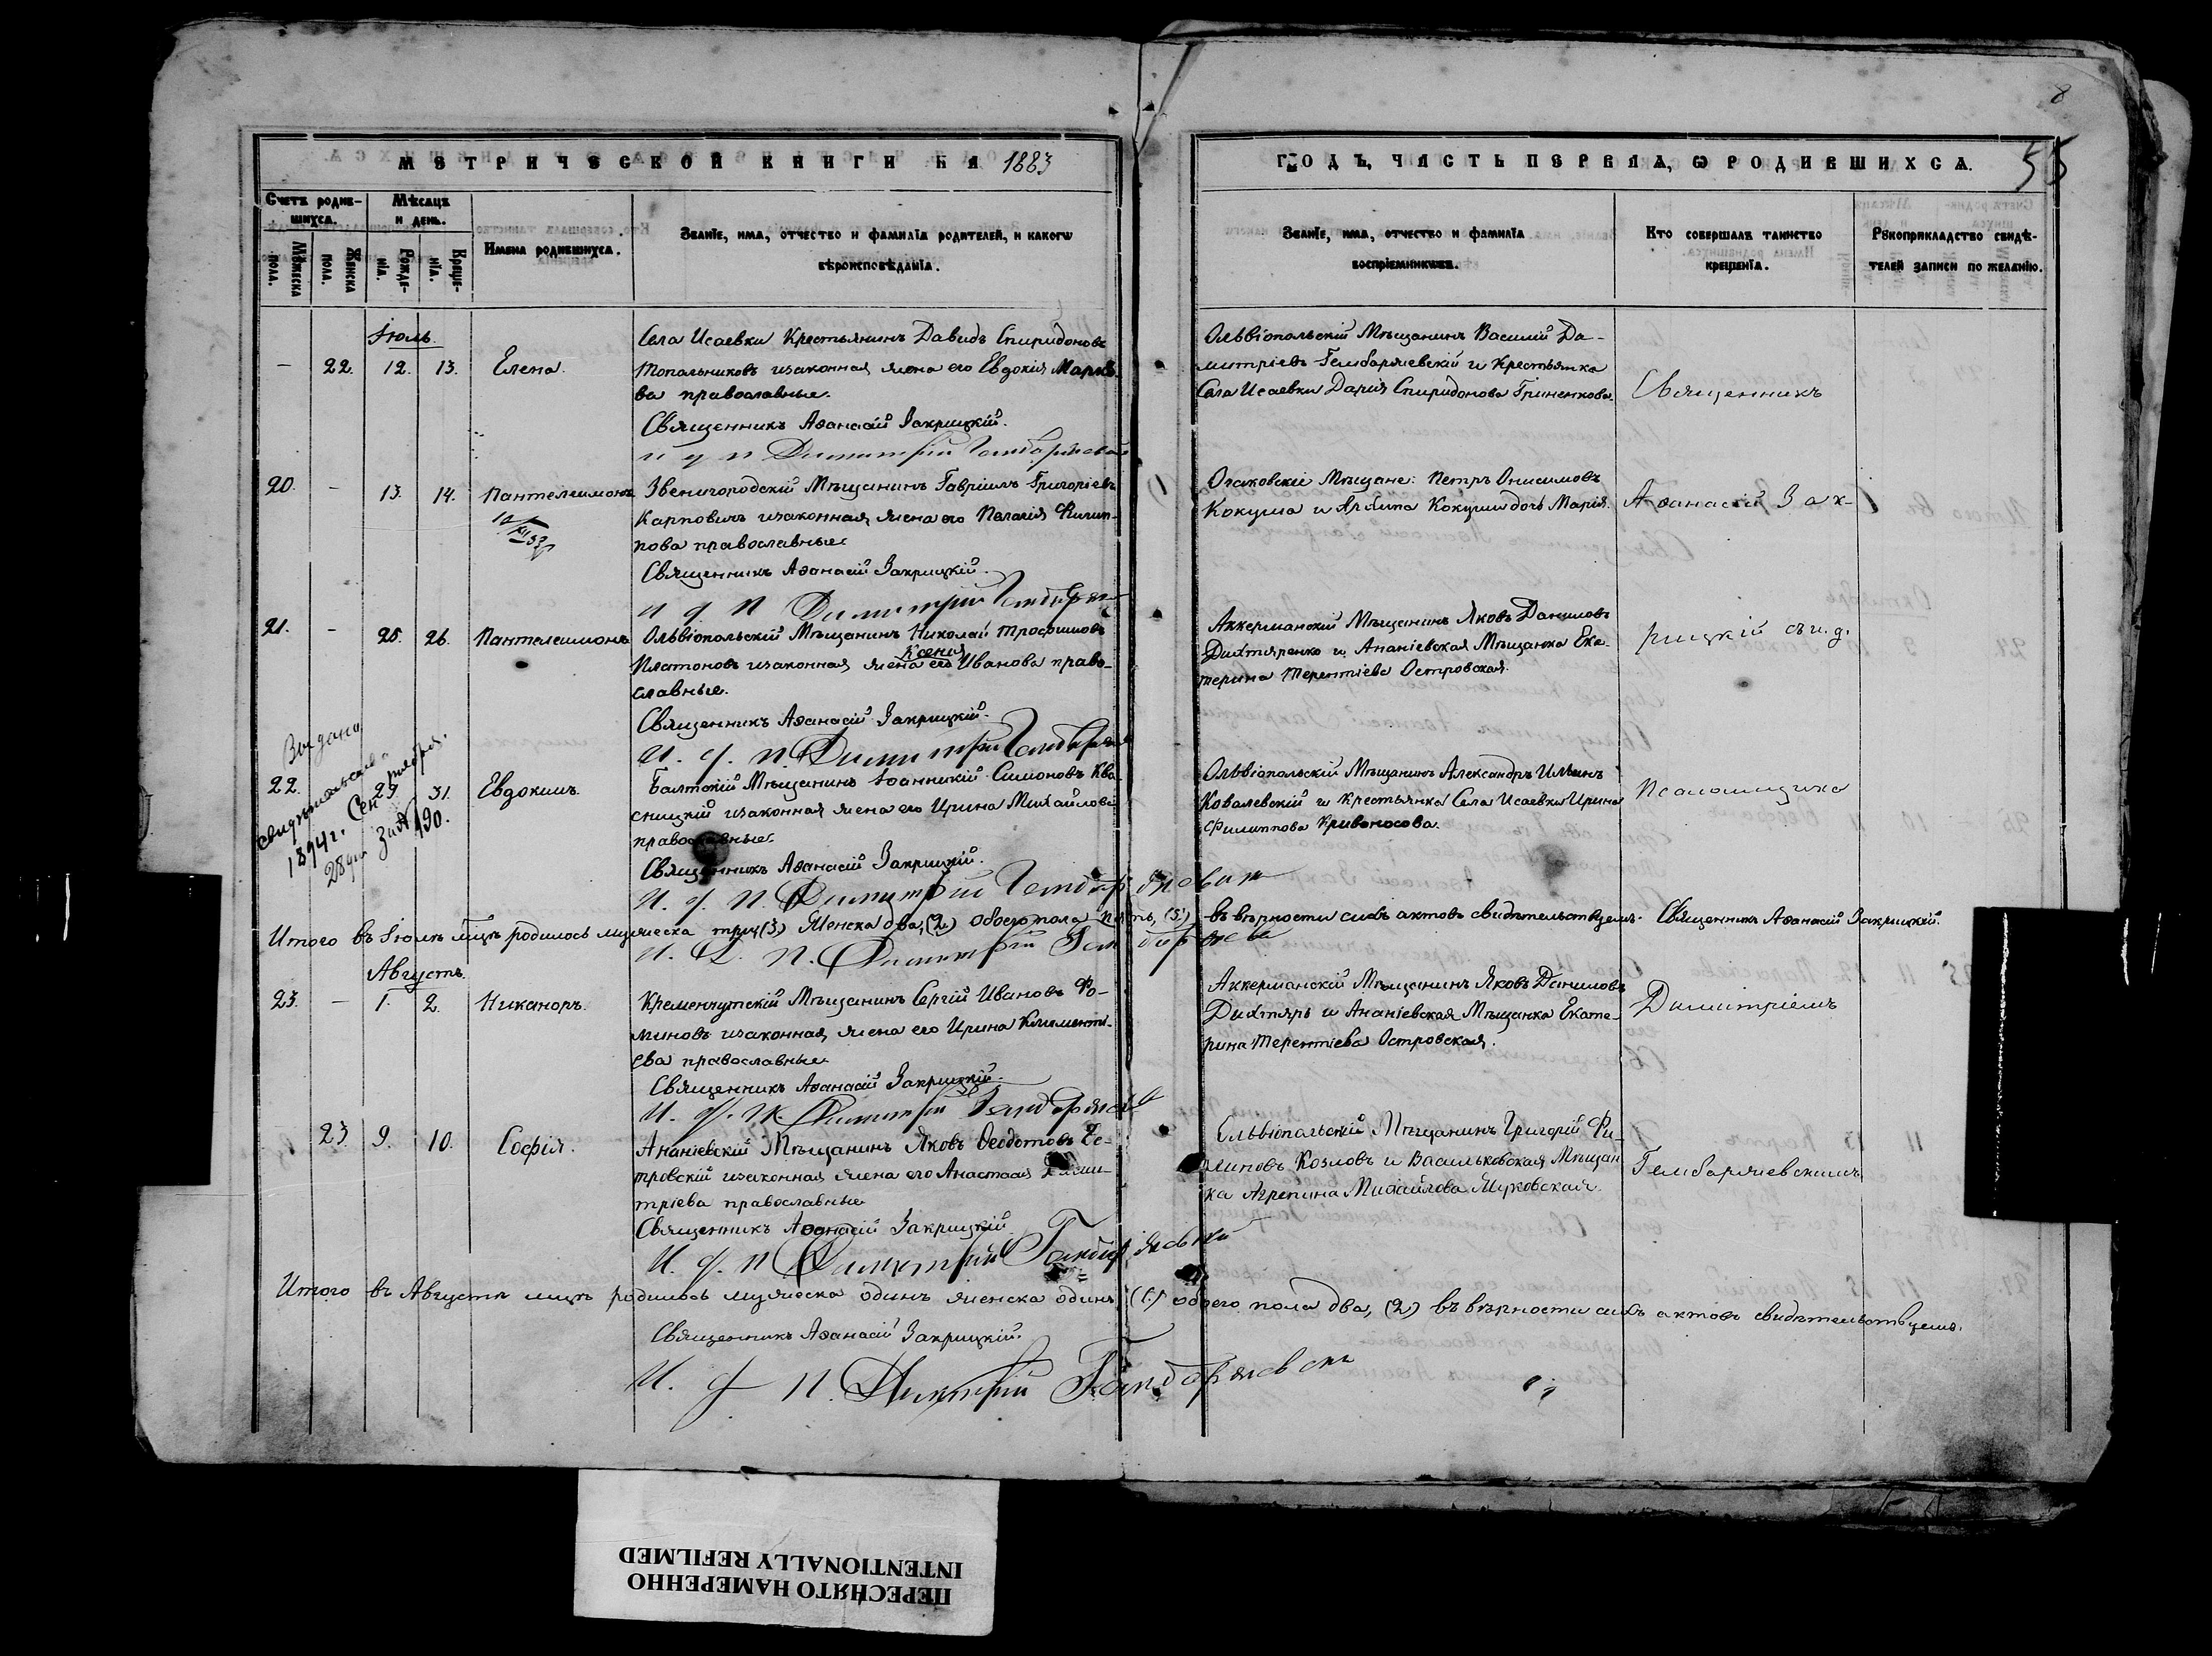 8
МЕТРИЧЕСКОЙ КНИГИ НА 1883
ГОДЪ, ЧАСТЬ ПЕРВАЯ, Ѡ РОДИВШИХСѦ.
55
Счетъ родив-
шихсѧ.
Мѣсяцъ
и день.
Мꙋжеска
пола.
Женска
пола.
Рожде-
нїѧ.
Креще-
нїѧ.
Имена родившихсѧ.
Званїе, имѧ, отчество и фамилїѧ родителей, и какогѡ
вѣроисповѣданїѧ.
Званїе, имѧ, отчество и фамилїѧ
воспрїемникѡвъ.
Кто совершалъ таинство
крещенїѧ.
Рꙋкоприкладство свидѣ-
телей записи по желанїю.
Іюль.
– 22. 12. 13. Елена.
Села Исаевки Крестьянинъ Давидъ Спиридоновъ
Топальниковъ изаконная жена его Евдокія
ва православные.
Священникъ Аѳанасій Закрицкій.
и д п Димитрій Гембаржевскій
Ольвіопольскій Мѣщанинъ Василій Ди-
митріевъ Гембаржевскій и Крестьянка
Села Исаевки Дарія Спиридонова Гриненкова.
Священникъ
20. – 13. 14. Пантелеимонъ
Звенигородскій Мѣщанинъ Гавріилъ Григоріевъ
Карповичъ изаконная жена его Пелагія Филип-
пова православные
Священникъ Аѳанасій Закрицкій.
и д п Димитрій Гембарже
Очаковскіе Мѣщане: Петръ Онисимовъ
Кокуша и дочь Марія.
Аѳанасій Зак-
21. – 25. 26. Пантелеимонъ
Ольвіопольскій Мѣщанинъ Николай Трофимовъ
Ксенія
Платоновъ изаконная жена его Иванова право-
славные.
Священникъ Аѳанасій Закрицкій.
И. д. п. Димитрій Гембарже
Аккерманскій Мѣщанинъ Яковъ Даниловъ
Дихтяренко и Ананіевская Мѣщанка Ека-
терина Терентіева Островская.
рицкій съ и. д.
Выдано
свидѣтельство
1894 г. Сентября
28 дня за № 190.
22. 29. 31. Евдокимъ.
Балтскій Мѣщанинъ Іоанникій Симоновъ Ква-
сницкій изаконная жена его Ирина Михайлова
православные.
Священникъ Аѳанасій Закрицкій.
И. д. п. Димитрій Гембаржевскі
Ольвіопольскій Мѣщанинъ Александръ Ильинъ
Ковалевскій и Крестьянка Села Исаевки Ирина
Филиппова Кривоносова.
Псаломщика
Итого въ Іюлѣ мцѣ родилось мужеска три, (3) женска два, (2) обоего пола пять, (5) въ вѣрности сихъ актовъ свидѣтельствуемъ. Священникъ Аѳанасій Закрицкій.
И. д. п. Димитрій Гембаржев
Августъ.
23. – 1. 2. Никаноръ.
Кременчугскій Мѣщанинъ Сергій Ивановъ Фо-
миновъ изаконная жена его Ирина Климентіе-
ева православные
Священникъ Аѳанасій Закрицкій.
И. д. п. Димитрій Гембаржевс
Аккерманскій Мѣщанинъ Яковъ Даниловъ
Дихтярь и Ананіевская Мѣщанка Екате-
рина Терентіева Островская.
Димитріемъ
23. 9. 10. Софія.
Ананіевскій Мѣщанинъ Яковъ Ѳеодотовъ Ос-
тровскій изаконная жена его Анастасія Дими-
тріева православные
Священникъ Аѳанасій Закрицкій
И. д. п Димитрій Гембаржевскій
Ольвіопольскій Мѣщанинъ Григорій Фи-
липовъ Козловъ и Васильковская Мѣщан-
ка Агрепина Михайлова Жуковская.
Гембаржевскимъ
Итого въ Августѣ мцѣ родилось мужеска одинъ женска одинъ, (1.) обоего пола два, (2) въ вѣрности сихъ актовъ свидѣтельствуемъ.
Священникъ Аѳанасій Закрицкій.
И. д п. Димитрій Гембаржевскі
ПЕРЕСНЯТО НАМЕРЕННО
INTENTIONALLY REFILMED